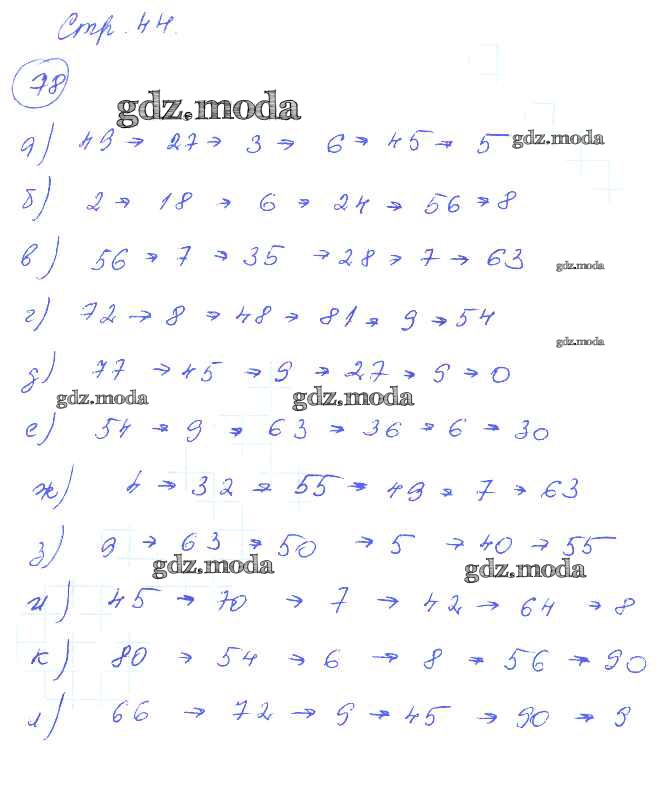 Стр. 44.
78
gdz.moda
а) 49 → 27 → 3 → 6 → 45 → 5 gdz.moda
б) 2 → 18 → 6 → 24 → 56 → 8
в) 56 → 7 → 35 → 28 → 7 → 63 gdz.moda
г) 72 → 8 → 48 → 81 → 9 → 54
gdz.moda
д) 77 → 45 → 9 → 27 → 9 → 0
gdz.moda gdz.moda
е) 54 → 9 → 63 → 36 → 6 → 30
ж) 4 → 32 → 55 → 49 → 7 → 63
з) 9 → 63 → 50 → 5 → 40 → 55
gdz.moda gdz.moda
и) 45 → 70 → 7 → 42 → 64 → 8
к) 80 → 54 → 6 → 8 → 56 → 90
л) 66 → 72 → 9 → 45 → 90 → 9